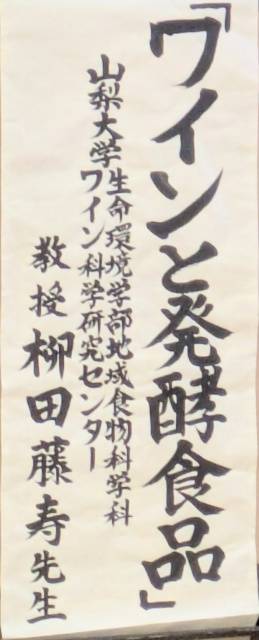 「ワインと発酵食品」
山梨大学生命環境学部地域食物科学科
ワイン科学研究センター
教授 柳田藤寿先生